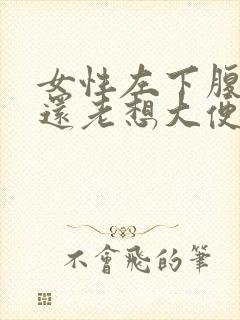 女性左下腹
還老想大便
不會飛的筆